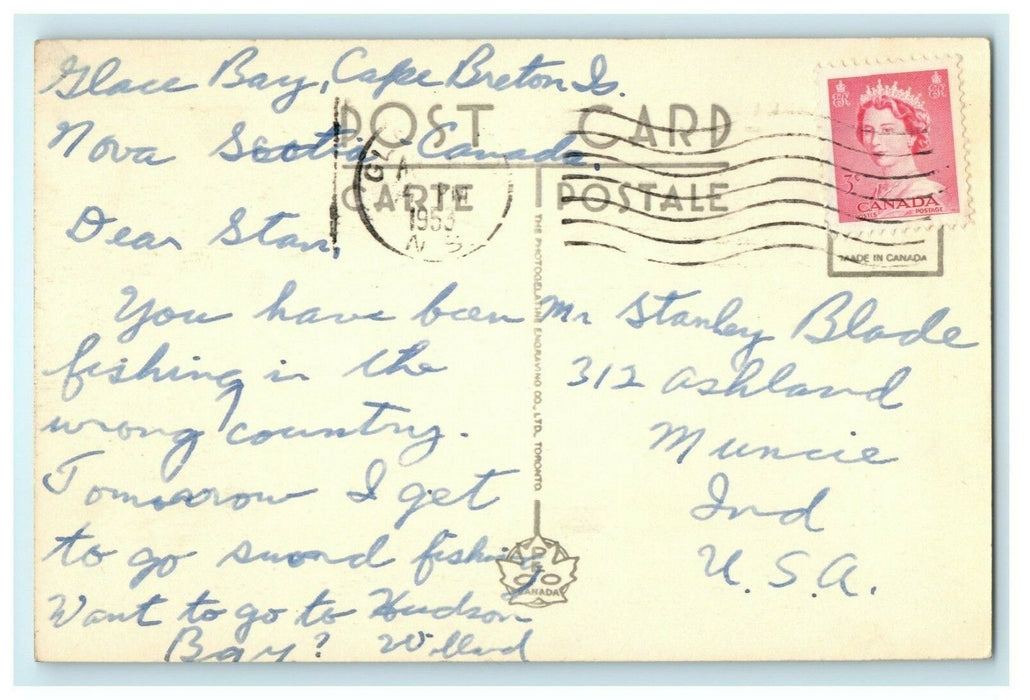 Glace Bay, Cape Breton Is.
Nova Scotia Canada.
POST CARD
CARTE POSTALE
GLA
PM
1953
N S
ER ER
3¢
CANADA
POSTES POSTAGE
MADE IN CANADA
Dear Stan,
You have been
fishing in the
wrong country.
Tomorrow I get
to go sword fishing
Want to go to Hudson
Bay? Willard
THE PHOTOGELATINE ENGRAVING CO., LTD. TORONTO
PECO
CANADA
Mr Stanley Blade
312 Ashland
Muncie
Ind
U.S.A.